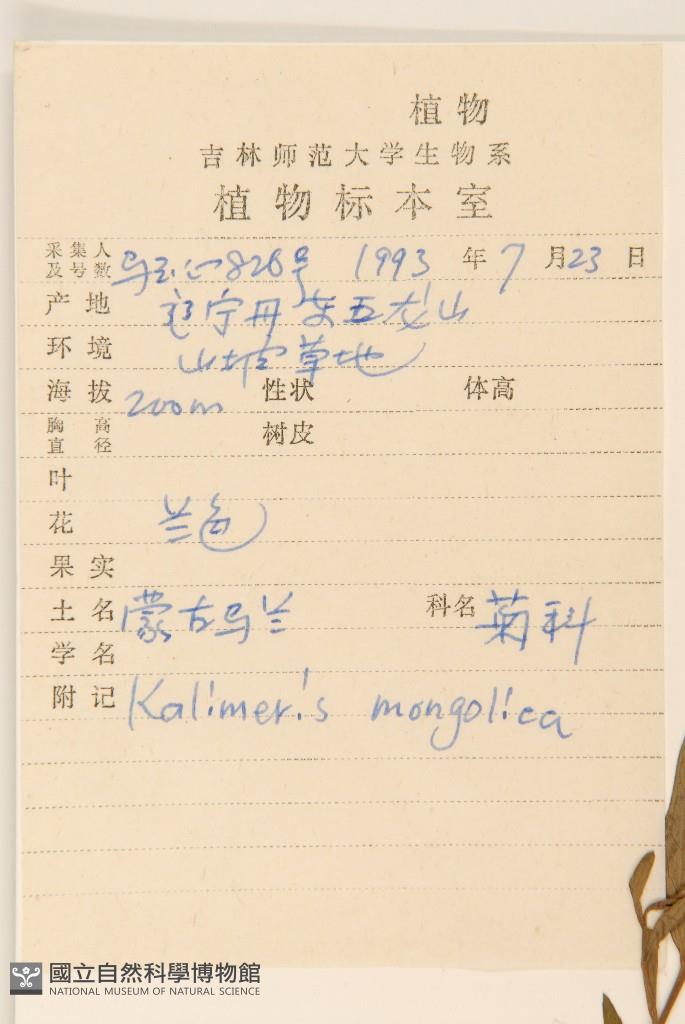 植物
吉林师范大学生物系
植物标本室
采集人及号数 马玉心826号 1993年7月23日
产地 辽宁丹东五龙山
环境 山坡草地
海拔 200m 性状 体高
胸高直径 树皮
叶
花 兰色
果实
土名 蒙古马兰 科名 菊科
学名
附记 Kalimeris mongolica
國立自然科學博物館
NATIONAL MUSEUM OF NATURAL SCIENCE